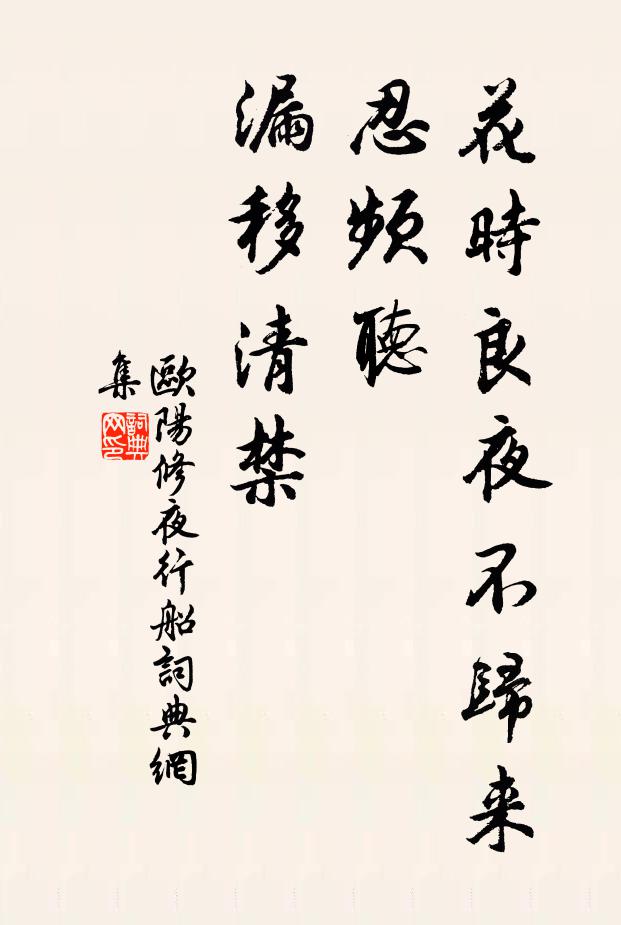 花時良夜不歸来
忍頻聽
漏移清禁
歐陽修夜行船詞典網
集
詞典
网印